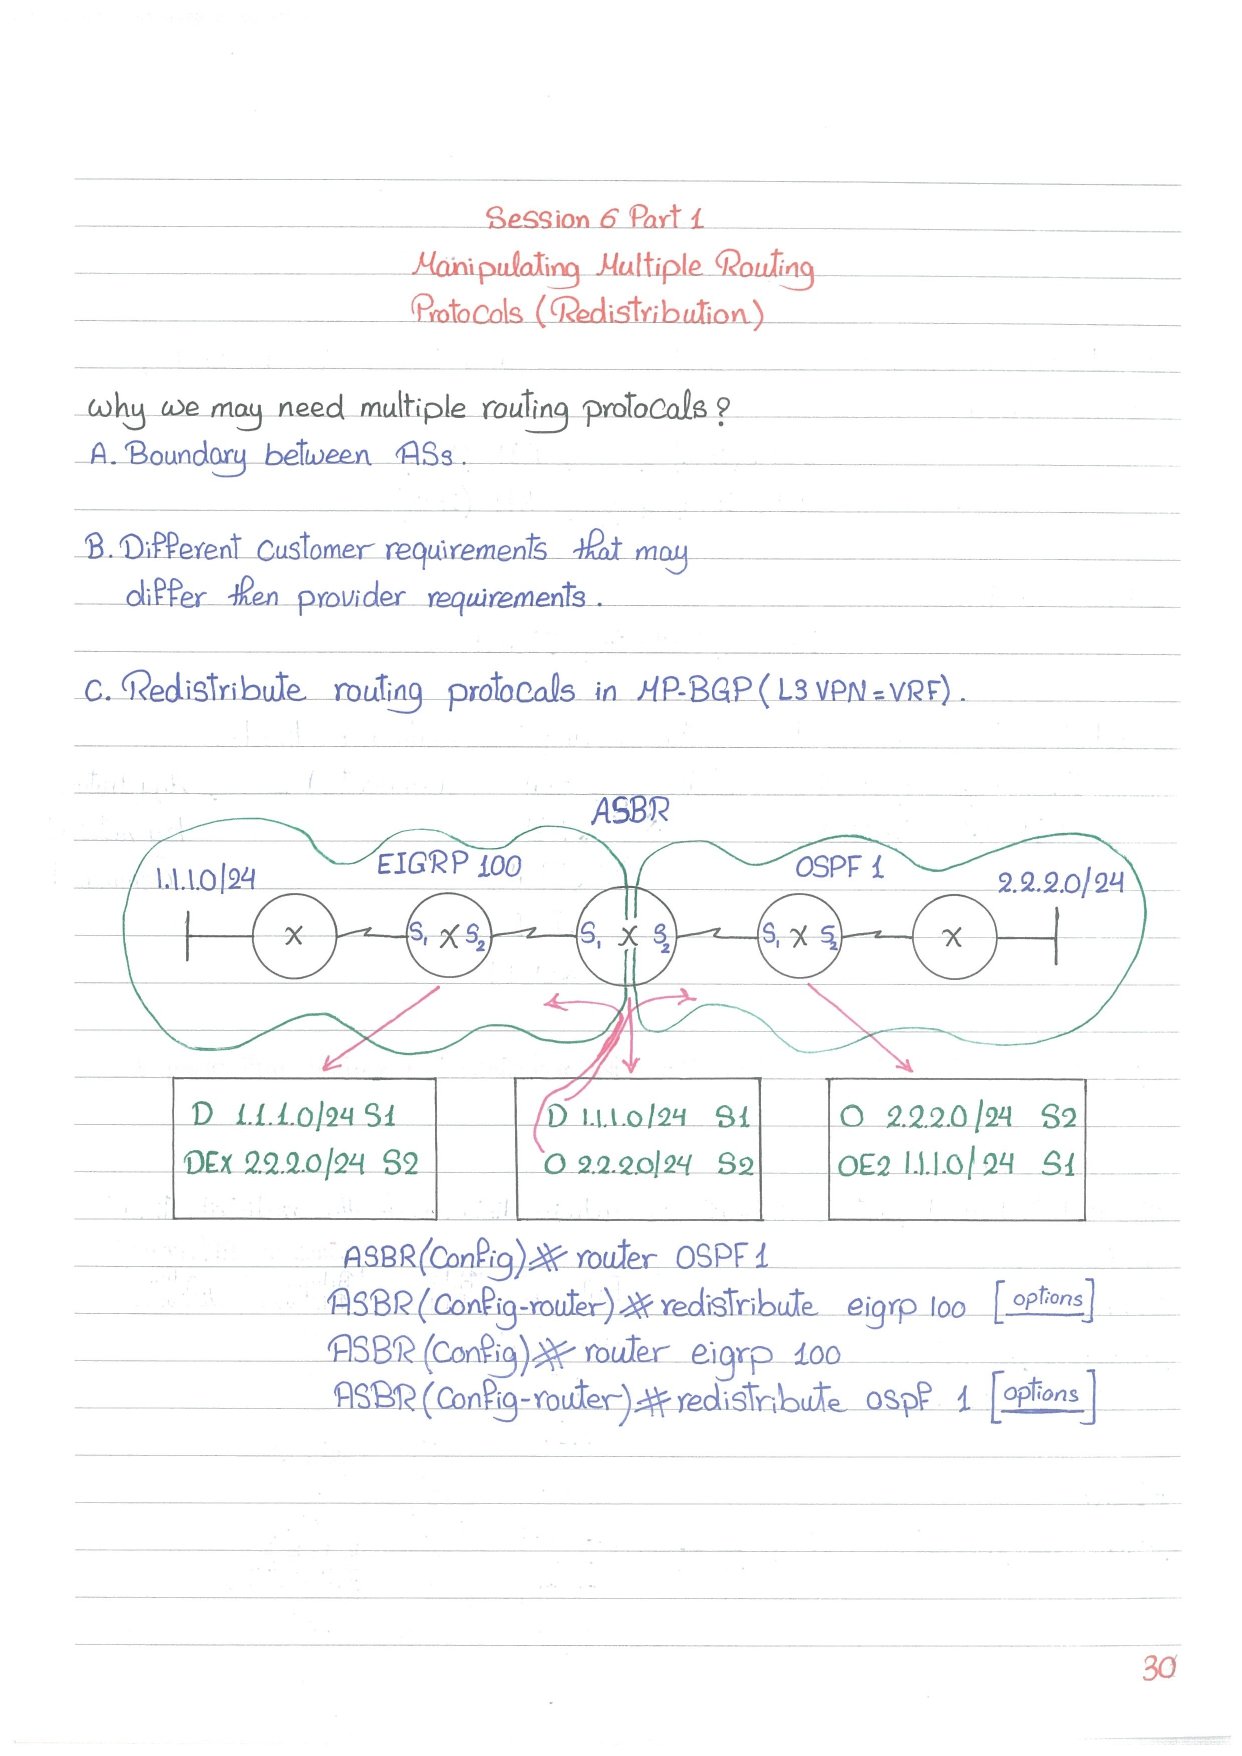 Session 6 Part 1
Manipulating Multiple Routing
Protocols (Redistribution)
why we may need multiple routing protocals?
A. Boundary between ASs.
B. Different customer requirements that may
differ then provider requirements.
C. Redistribute routing protocals in MP-BGP (L3 VPN = VRF).
ASBR
EIGRP 100
OSPF 1
1.1.1.0/24
2.2.2.0/24
X S1 X S2 S1 X S2 S1 X S2 X
D 1.1.1.0/24 S1
DEX 2.2.2.0/24 S2
D 1.1.1.0/24 S1
O 2.2.2.0/24 S2
O 2.2.2.0/24 S2
OE2 1.1.1.0/24 S1
ASBR(Config)# router OSPF 1
ASBR(Config-router)# redistribute eigrp 100 [options]
ASBR(Config)# router eigrp 100
ASBR(Config-router)# redistribute ospf 1 [options]
30